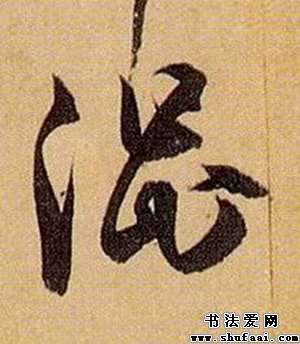 混
书法爱网
www.shufaai.com